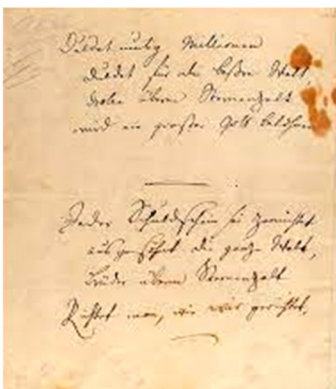 Duldet muthig Millionen
duldet für die beßre Welt,
droben überm Sternenzelt
wird ein großer Gott belohnen
Jeder Schuldschein sei zernichtet
ausgesöhnt die ganze Welt,
Brüder überm Sternenzelt
Richtet man, wie wir gerichtet.